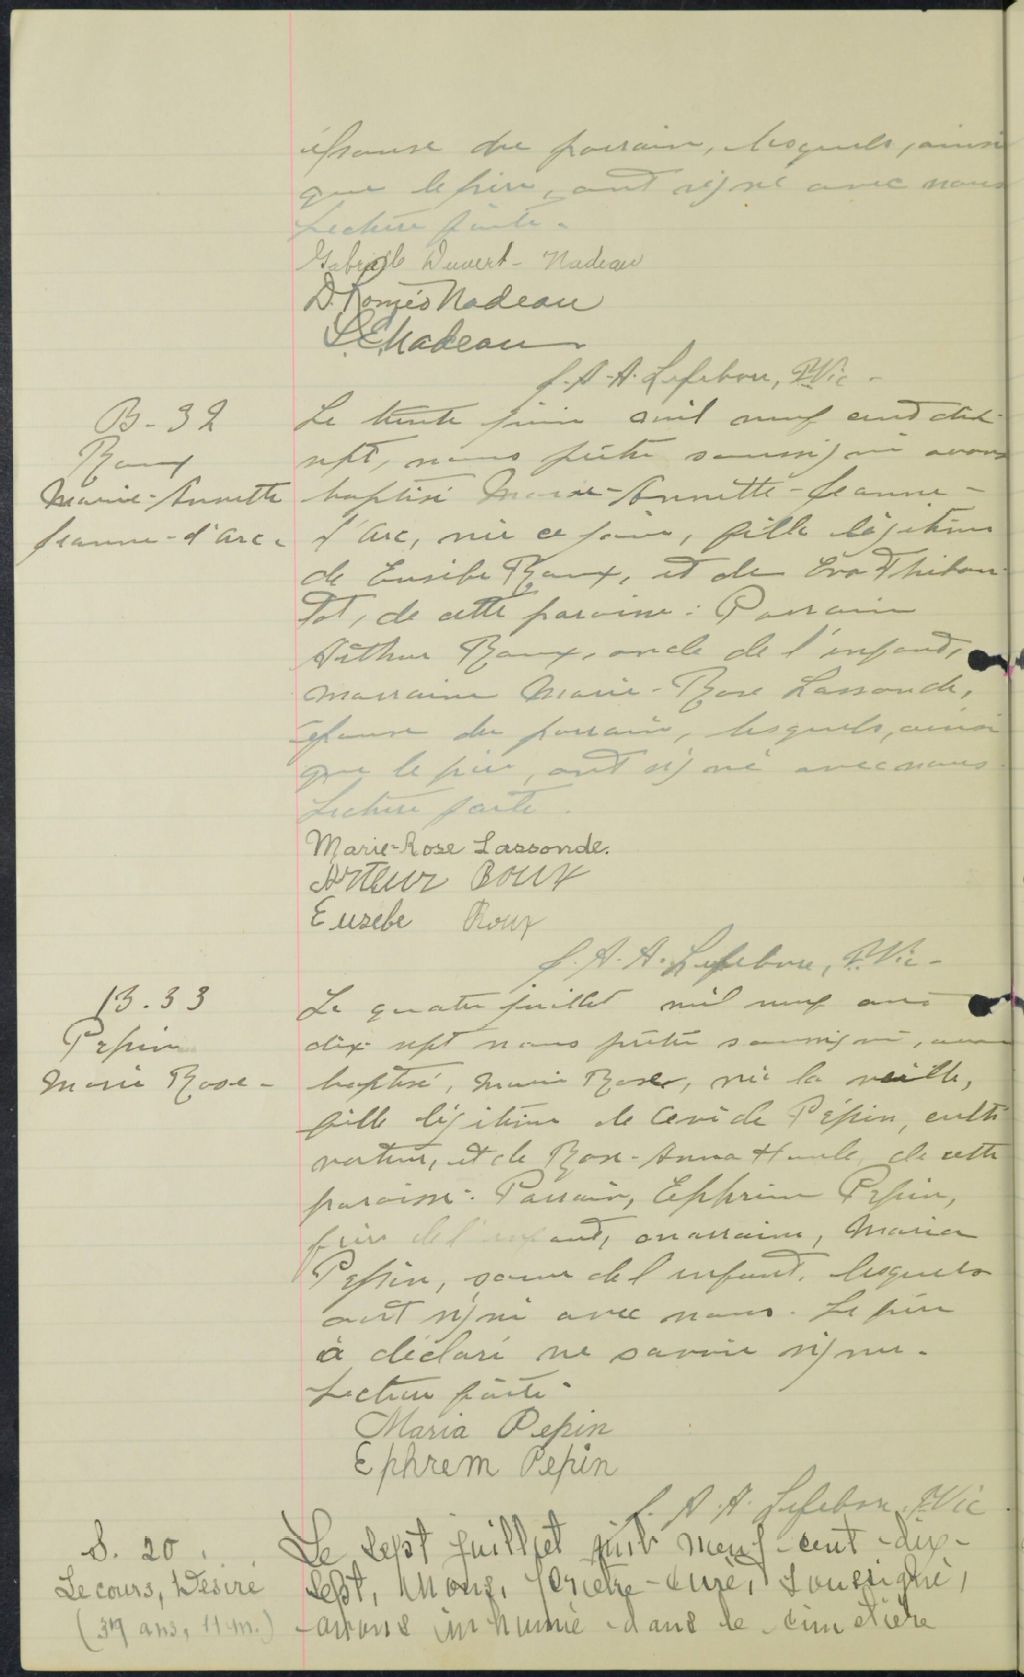 épouse du parrain, lesquels, ainsi
que le père, ont signé avec nous
Lecture faite.
Gabrielle Duvert-Nadeau
D. Roméo Nadeau
L. E. Nadeau
J. A. A. Lefebvre, Ptre Vic.
B-32
Roux
Marie-Annette
Jeanne-d'Arc.
Le trente juin mil neuf cent dix-
sept, nous prêtre soussigné avons
baptisé Marie-Annette-Jeanne-
d'Arc, née ce jour, fille légitime
de Eusèbe Roux, et de Eva Thibou-
tot, de cette paroisse. Parrain
Arthur Roux, oncle de l'enfant,
marraine Marie-Rose Lassonde,
épouse du parrain, lesquels, ainsi
que le père, ont signé avec nous.
Lecture faite.
Marie-Rose Lassonde.
Arteur Roux
Eusebe Roux
J. A. A. Lefebvre, Ptre Vic.
B. 33
Pepin
Marie Rose-
Le quatre juillet mil neuf cent
dix-sept nous prêtre soussigné, avons
baptisé, Marie Rose, née la veille,
fille légitime de Cevide Pépin, culti
vateur, et de Rose-Anna Houle, de cette
paroisse. Parrain, Ephrem Pepin,
frère de l'enfant, marraine, Maria
Pepin, soeur de l'enfant, lesquels
ont signé avec nous. Le père
a déclaré ne savoir signer.
Lecture faite.
Maria Pepin
Ephrem Pepin
J. A. A. Lefebvre, Ptre Vic
S. 20.
Lecours, Désiré
(37 ans, 11 m.)
Le sept juillet mil neuf-cent-dix-
sept, Nous, prêtre-curé, soussigné,
avons inhumé dans le cimetière